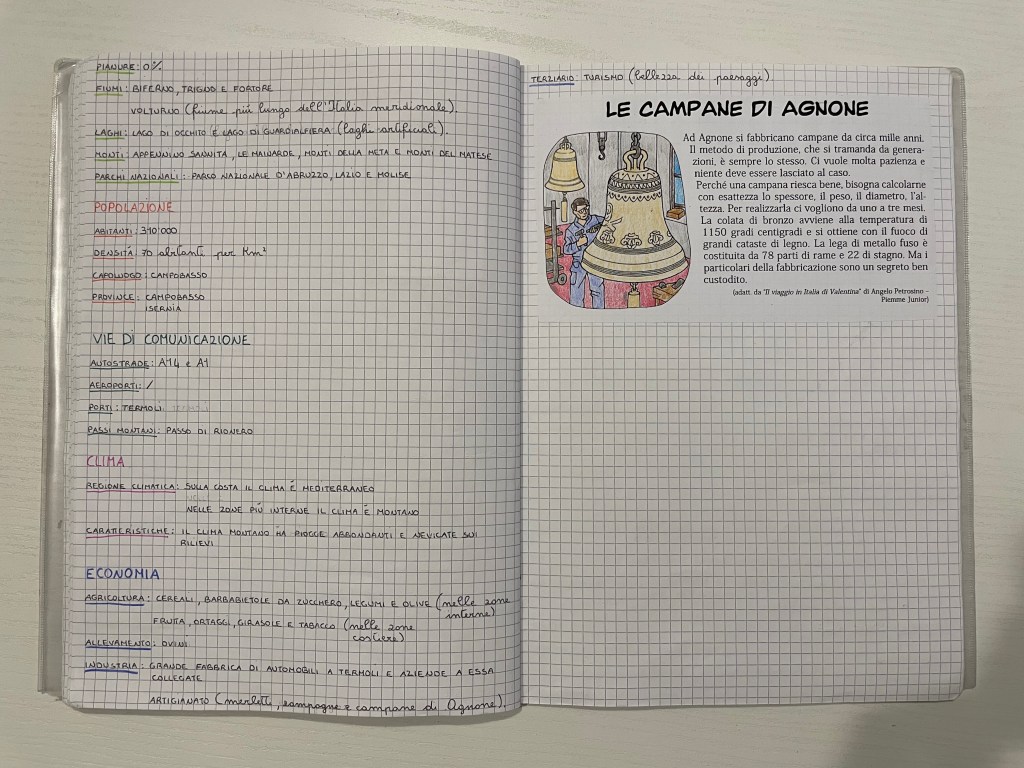 PIANURE: 0%
FIUMI: BIFERNO, TRIGNO E FORTORE
VOLTURNO (fiume più lungo dell'Italia meridionale).
LAGHI: LAGO DI OCCHITO E LAGO DI GUARDIALFIERA (laghi artificiali).
MONTI: APPENNINO SANNITA, LE MAINARDE, MONTI DELLA META E MONTI DEL MATESE
PARCHI NAZIONALI: PARCO NAZIONALE D'ABRUZZO, LAZIO E MOLISE
POPOLAZIONE
ABITANTI: 310'000
DENSITÀ: 70 abitanti per Km²
CAPOLUOGO: CAMPOBASSO
PROVINCE: CAMPOBASSO
ISERNIA
VIE DI COMUNICAZIONE
AUTOSTRADE: A14 e A1
AEROPORTI: /
PORTI: TERMOLI
PASSI MONTANI: PASSO DI RIONERO
CLIMA
REGIONE CLIMATICA: SULLA COSTA IL CLIMA É MEDITERRANEO
NELLE ZONE PIÚ INTERNE IL CLIMA É MONTANO
CARATTERISTICHE: IL CLIMA MONTANO HA PIOGGE ABBONDANTI E NEVICATE SUI
RILIEVI
ECONOMIA
AGRICOLTURA: CEREALI, BARBABIETOLE DA ZUCCHERO, LEGUMI E OLIVE (nelle zone
interne)
FRUTTA, ORTAGGI, GIRASOLE E TABACCO (nelle zone
costiere)
ALLEVAMENTO: OVINI
INDUSTRIA: GRANDE FABBRICA DI AUTOMOBILI A TERMOLI E AZIENDE A ESSA
COLLEGATE
ARTIGIANATO (merletti, zampogne e campane di Agnone).
TERZIARIO: TURISMO (bellezza dei paesaggi)
LE CAMPANE DI AGNONE
Ad Agnone si fabbricano campane da circa mille anni.
Il metodo di produzione, che si tramanda da genera-
zioni, è sempre lo stesso. Ci vuole molta pazienza e
niente deve essere lasciato al caso.
Perché una campana riesca bene, bisogna calcolarne
con esattezza lo spessore, il peso, il diametro, l'al-
tezza. Per realizzarla ci vogliono da uno a tre mesi.
La colata di bronzo avviene alla temperatura di
1150 gradi centigradi e si ottiene con il fuoco di
grandi cataste di legno. La lega di metallo fuso è
costituita da 78 parti di rame e 22 di stagno. Ma i
particolari della fabbricazione sono un segreto ben
custodito.
(adatt. da "Il viaggio in Italia di Valentina" di Angelo Petrosino -
Piemme Junior)